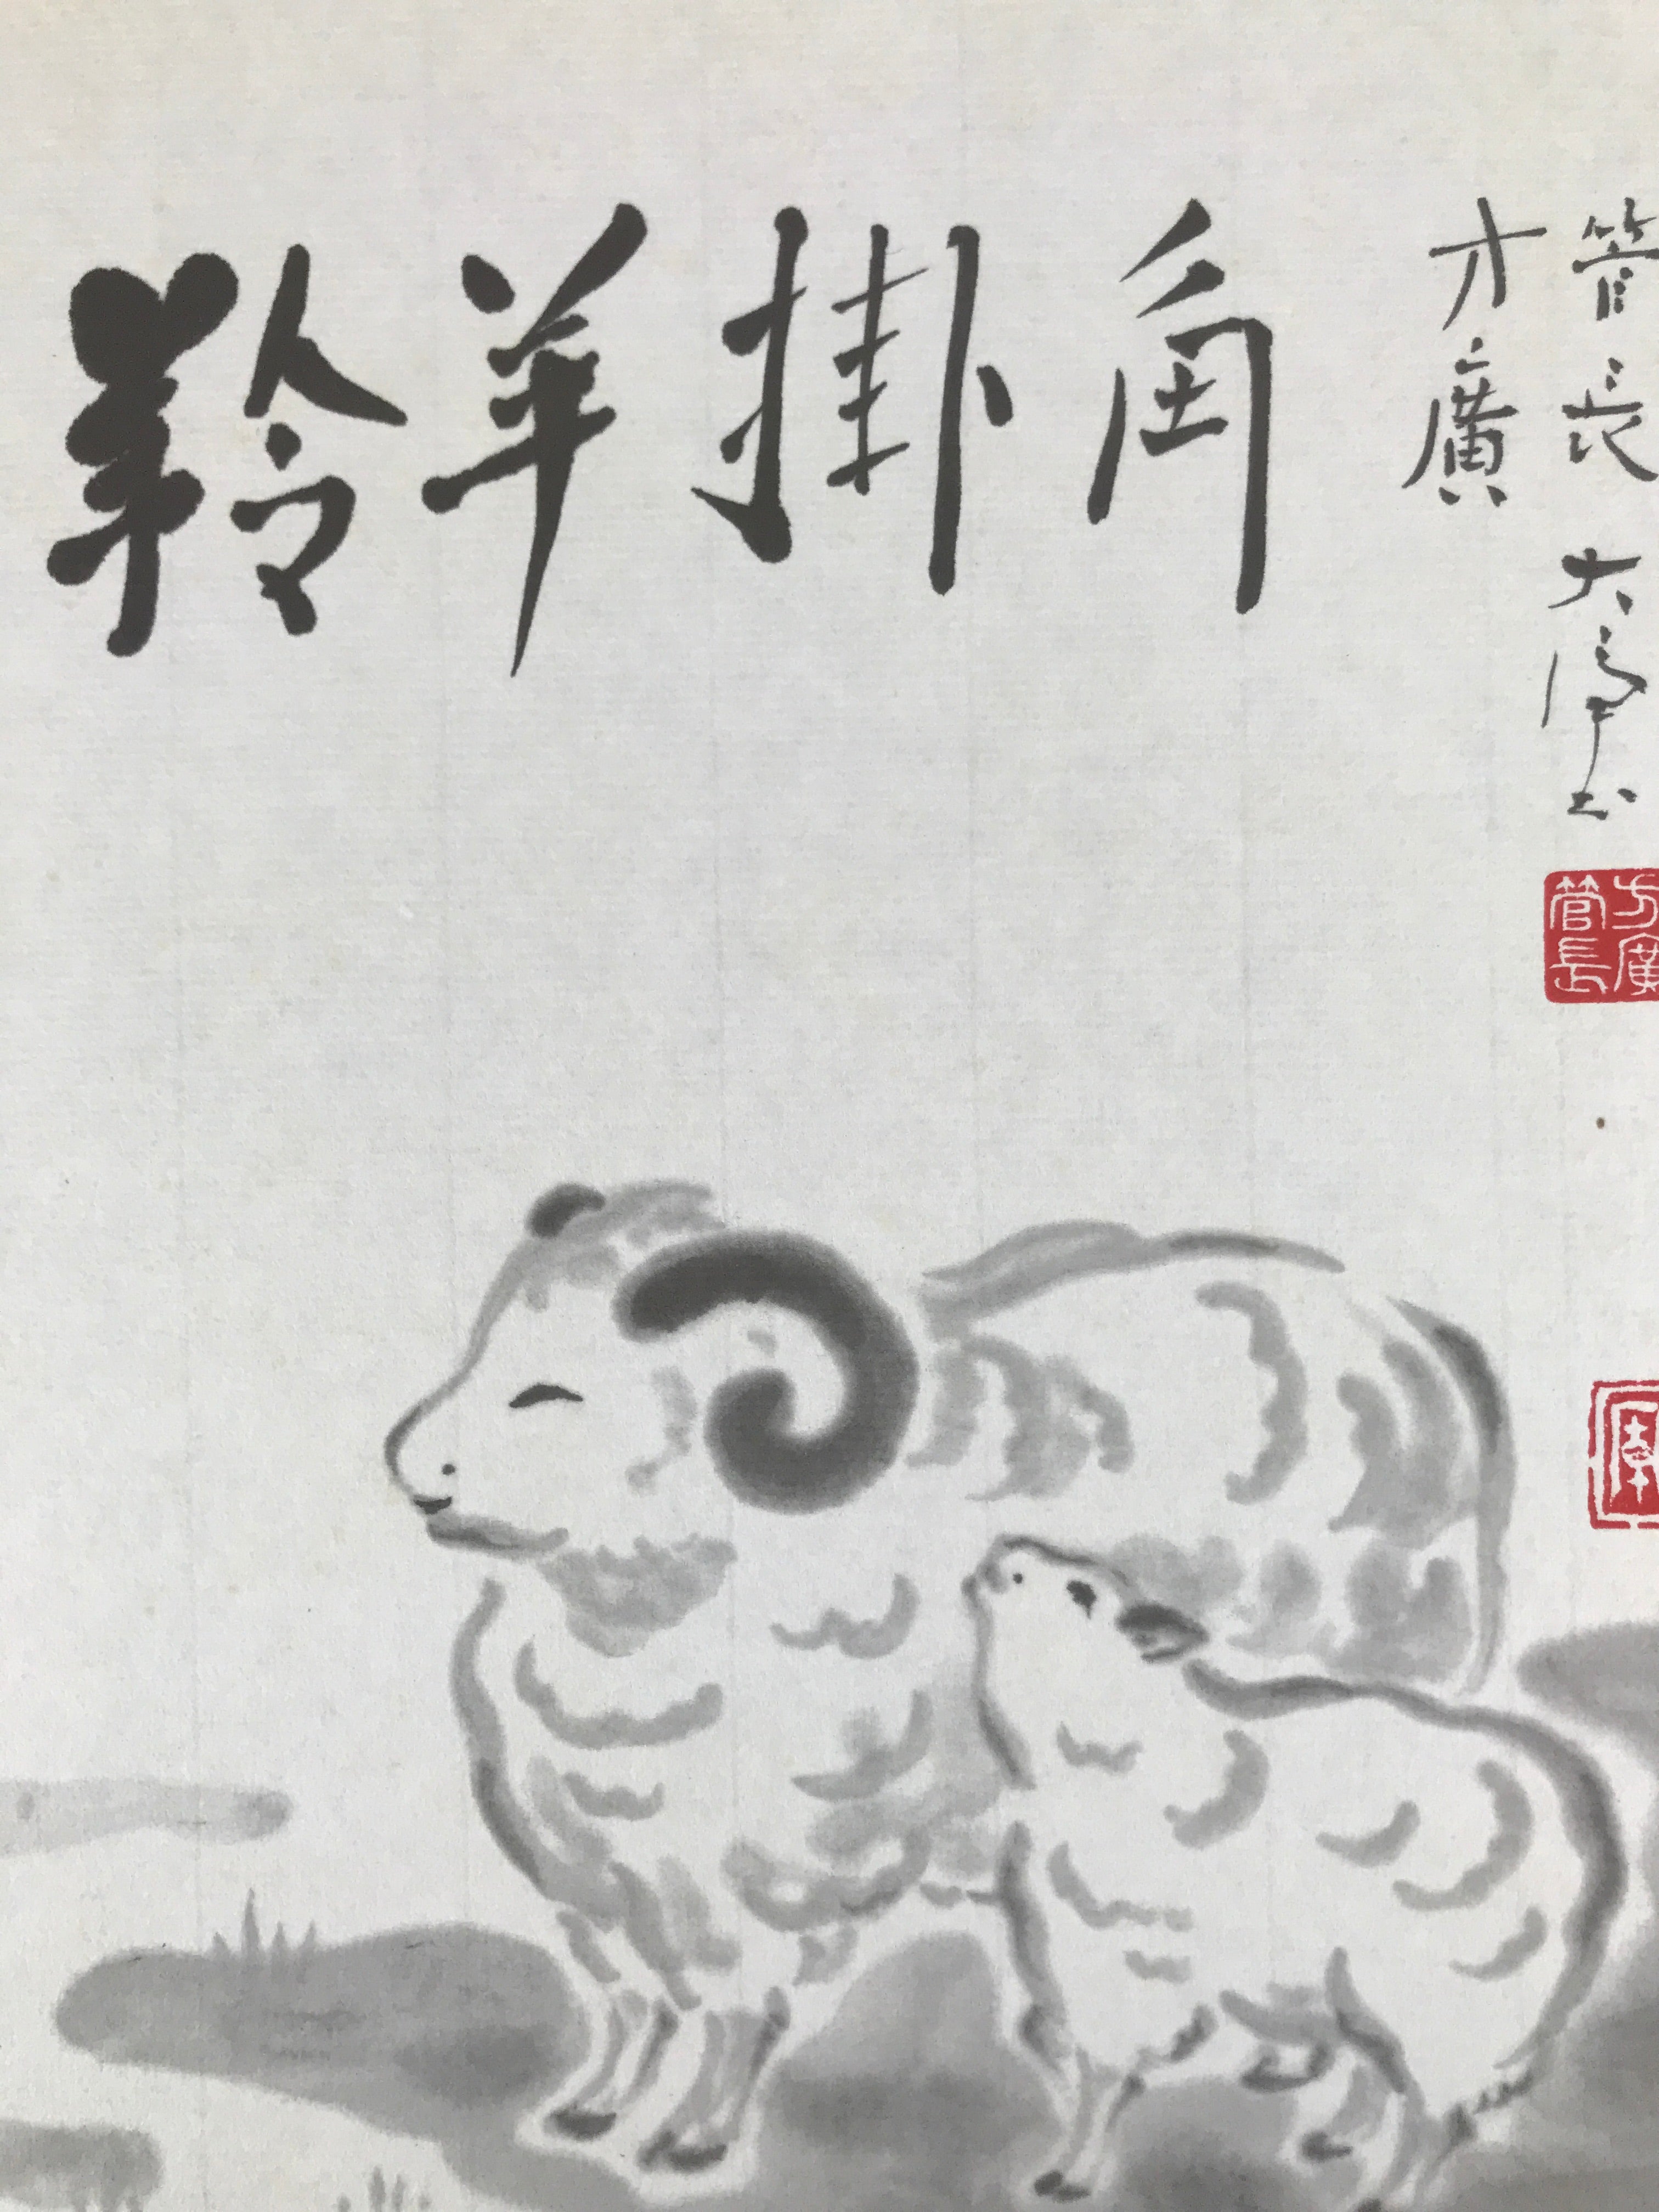 羚羊掛角
方廣
管長 大
方廣
管長